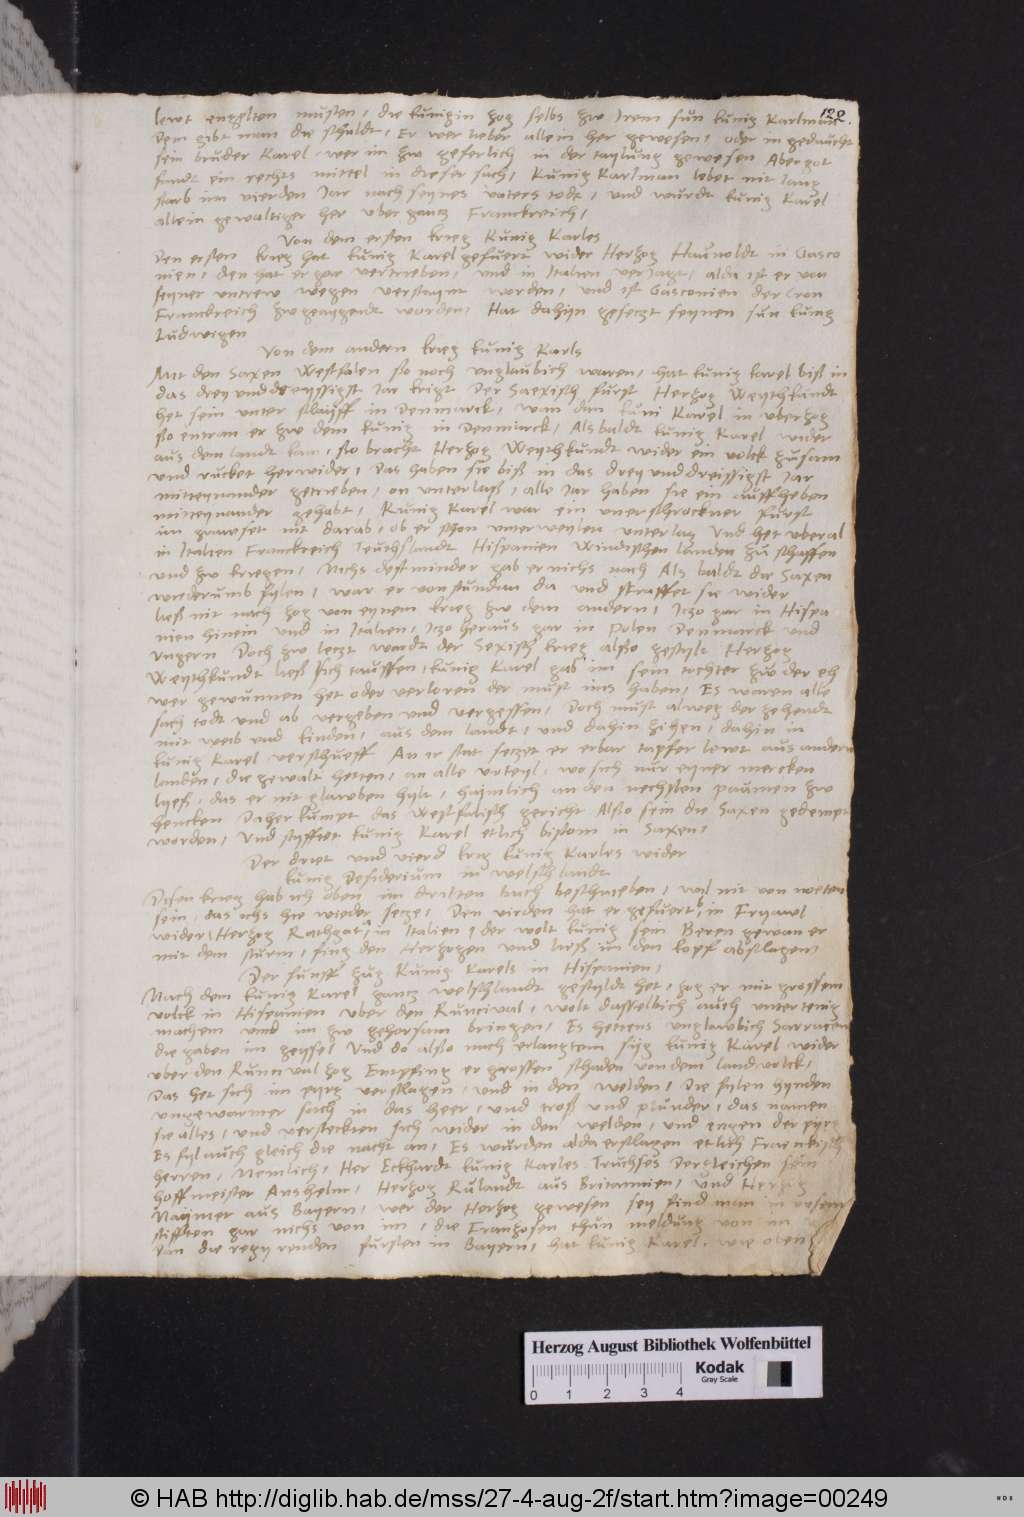 122.
lewt engelten musten, die kunigin zog selbs zw Irem sun kunig Karlman
dem gibt man die schuldt, Er wer lieber allein her gewesen, oder in gedaucht
sein bruder Karel wer im zw geferlich in der taylung gewesen Aber got
fandt ein rechts mittel in dieser sach, Kunig Karlman lebet nit lang
starb im vierden Jar nach seynes vaters todt, und wurdt kunig Karel
allein gewaltiger her uber gantz Franckreich,
Von dem ersten krieg Kunig Karles
Den ersten krieg hat kunig Karel gefuert wider Herzog Haunoldt in Gasco
nien, den hat er gar vertrieben, und in Italien verjagt, alda ist er von
seyner untrew wegen versteynt worden, und ist Gasconien der Cron
Franckreich zwgeaygendt worden, Hat dahyn gesetzt seynen sun kunig
Ludwigen
Von dem andern krieg kunig Karls
Mit den Saxen Westfalen so noch unglaubich waren, hat kunig karel biß in
das dreyunddreyssigst Jar krigt Der Saexisch furst Herzog Weythkundt
het sein unter schlayff in Denmarck, wan dan kuni Karel in uberzog
so entran er zw dem kunig in Denmarck, Als baldt kunig Karel wider
aus dem landt kam, so bracht Herzog Weythkundt wider ein volck zusam
und rucket herwider, Das haben sie biß in das drey und dreissigst Jar
mitteynander getrieben, on unterlaß, alle Jar haben sie ein auffheben
mitteynander gehabt, Kunig Karel war ein unerschrockner furst
im grauset nit darab, ob er schon unterweylen unterlag Und het uberal
in Italien Franckreich Teuthslandt Hispanien Windischen landen zu schaffen
und zw kriegen, Nichs destminder gab er nichs nach Als baldt die Saxen
wiederumb fylen, war er von stundan da und straffet sie wider
ließ nit nach zog von eynem krieg zw dem andern, Itzo gar in Hispa
nien hinein und in Italien, Itzo heraus gar in Polen Denmarck und
Ungern Doch zw letzt wardt der Sexisch krieg also gestylt Herzog
Weythkundt ließ sich tauffen, kunig Karel gab im sein tochter zw der eh
wer gewunnen het oder verloren der must ims haben, Es waren alle
sach todt und ab vergeben und vergessen, Doch must alweg der zehendt
mit weib und kinden, aus dem landt, und dahin zihen, dahin in
kunig Karel verschueff An ir stat setzet er erbar tapfer lewt aus andern
landen, die gewalt hetten, an alle urteyl, wo sich nur eyner mercken
lyeß, das er nit glawben hylt, haymlich an den nechsten paumen zw
hencken Daher kumpt das Westfalisch gericht Also sein die Saxen gedempt
worden, Und styfftet kunig Karel etlich bistom in Saxen,
Der driet und vierd krig kunig Karles wider
kunig Desiderium in welschlandt
Disen krieg hab ich oben im dritten buch beschrieben, wil nit von nöten
sein, das ichs hie wieder setze, Den vierden hat er gefuert, in Fryawl
wider Herzog Rathgat, in Italien, der wolt kunig sein Beren gewan er
mit dem sturm, fing den Herzogen und ließ im den kopf abschlagen,
Der funfft zug kunig Karels in Hispanien,
Nach dem kunig Karel gantz welschlandt gestyldt het, zog er mit grossem
volck in Hispanien uber den Runcival, wolt dasselbich auch untertenig
machem und im zw gehorsam bringen, Es hetens unglawbich Sarracen
die gaben im geyssel Und do also nach erlangtem syg kunig Karel wider
uber den Runcival zog Empfing er grossen schaden von dem landvolck,
Das het sich im pyrg verschlagen, und in den welden, die fylen hynden
ungewarnter sach in das heer, und troß und plunder, das namen
sie alles, und versteckten sich wider in den welden, und engen der pyrg
Es fyl auch gleich die nacht an, Es wurden alda erschlagen etlich Franckisch
herren, Nemlich, Her Eckhardt kunig Karles Truchses Dergleichen sein
hoffmeister Anshelm, Herzog Rulandt aus Britannien, Und Herzog
Naymer aus Bayern, wer der Herzog gewesen sey find man in unsern
stifften gar nichs von im, die Franzosen thun meldung von im
Von die regyrenden fursten in Bayern, hat kunig Karel, wie oben
Herzog August Bibliothek Wolfenbüttel
Kodak
Gray Scale
0 1 2 3 4
© HAB http://diglib.hab.de/mss/27-4-aug-2f/start.htm?image=00249